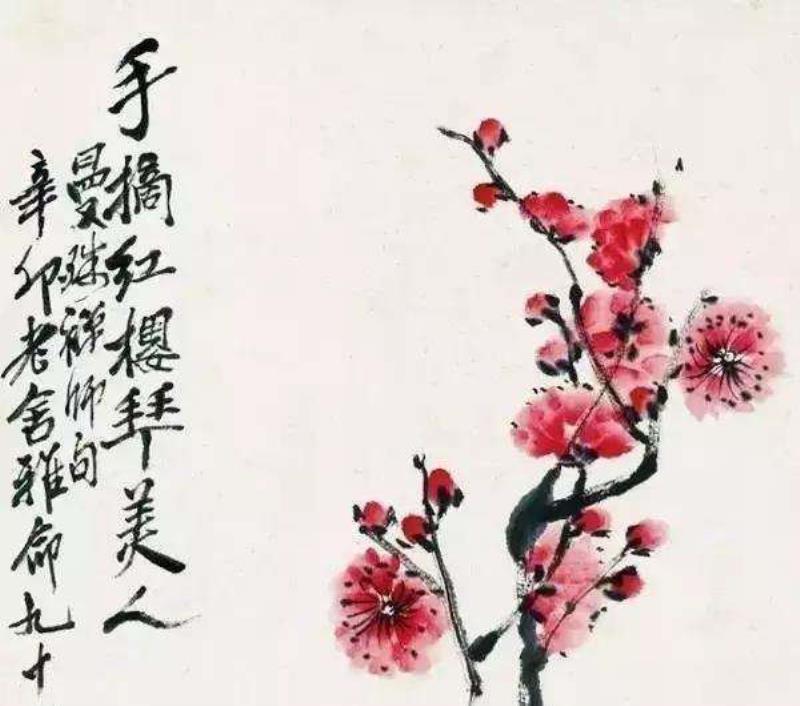 手摘紅櫻拜美人
曼殊禪師句
辛卯老舍雅命九十